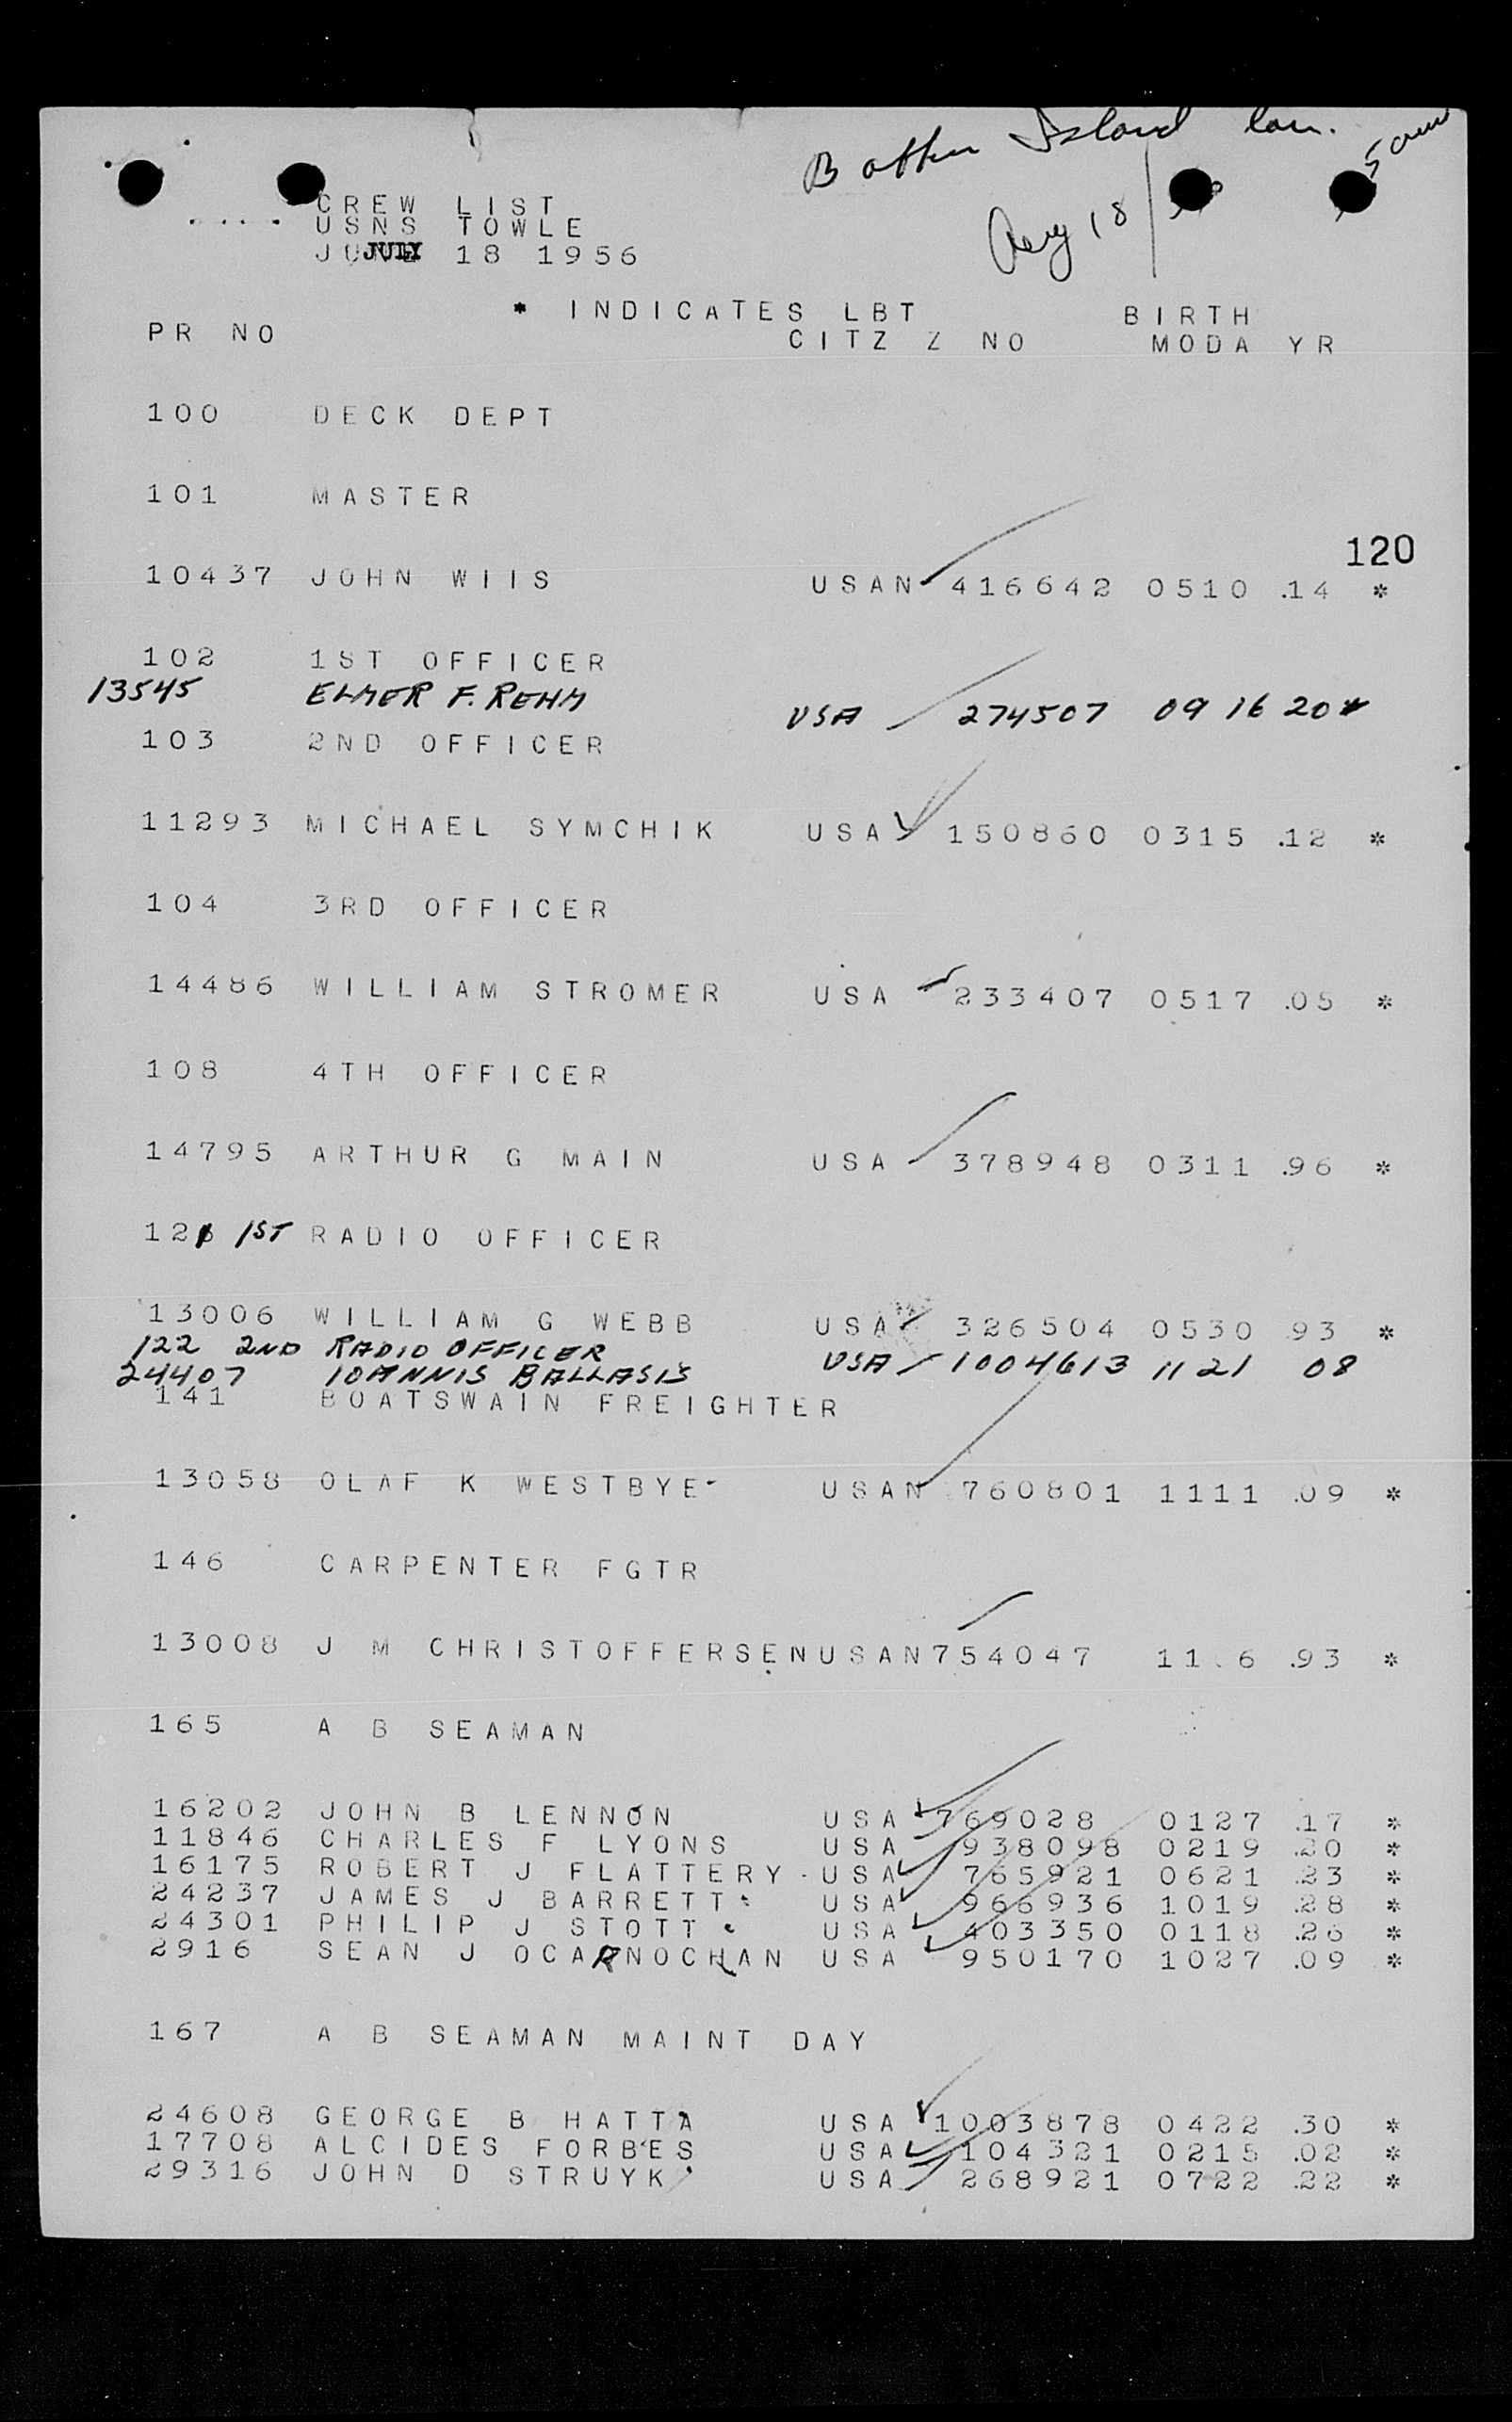 Island
Aug 18
CREW LIST
USNS TOWLE
JULY 18 1956
* INDICATES LBT BIRTH
PR NO CITZ Z NO MODA YR
100 DECK DEPT
101 MASTER
120
10437 JOHN WIIS USAN 416642 0510 .14 *
102 1ST OFFICER
13545 ELMER F. REHM USA 274507 09 16 20 *
103 2ND OFFICER
11293 MICHAEL SYMCHIK USA 150860 0315 .12 *
104 3RD OFFICER
14486 WILLIAM STROMER USA 233407 0517 .05 *
108 4TH OFFICER
14795 ARTHUR G MAIN USA 378948 0311 .96 *
121 1ST RADIO OFFICER
13006 WILLIAM G WEBB USA 326504 0530 93 *
122 2ND RADIO OFFICER
24407 IOANNIS BALLASIS USA 1004613 11 21 08
141 BOATSWAIN FREIGHTER
13058 OLAF K WESTBYE USAN 760801 1111 .09 *
146 CARPENTER FGTR
13008 J M CHRISTOFFERSENUSAN754047 11.6 .93 *
165 A B SEAMAN
16202 JOHN B LENNON USA 769028 0127 .17 *
11846 CHARLES F LYONS USA 938098 0219 .20 *
16175 ROBERT J FLATTERY USA 765921 0621 .23 *
24237 JAMES J BARRETT USA 966936 1019 .28 *
24301 PHILIP J STOTT USA 403350 0118 .26 *
2916 SEAN J OCARNOCHAN USA 950170 1027 .09 *
167 A B SEAMAN MAINT DAY
24608 GEORGE B HATTA USA 1003878 0422 .30 *
17708 ALCIDES FORBES USA 104321 0215 .02 *
29316 JOHN D STRUYK USA 268921 0722 .22 *